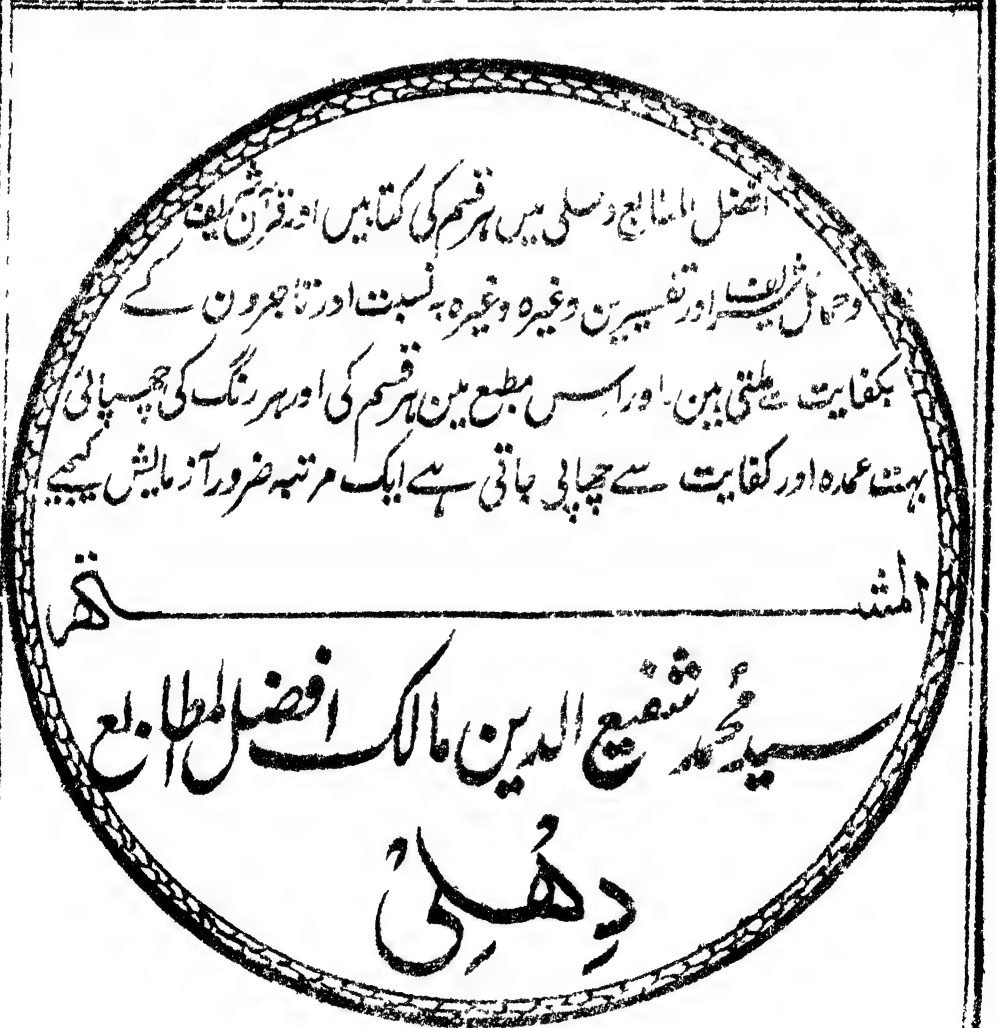 افضل المطابع دہلی میں ہر قسم کی کتابیں اور قرآن شریف
و حمائل شریف اور تفسیرین وغیرہ وغیرہ بہ نسبت اور تاجرون کے
بکفایت سے ملتی ہین۔ اور اس مطبع مین ہر قسم کی اور ہر رنگ کی چھپائی
بہت عمدہ اور کفایت سے چھاپی جاتی ہے ایک مرتبہ ضرور آزمایش کیجیے
المشتہر
سید محمد شفیع الدین مالک افضل المطابع
دِھُلِی